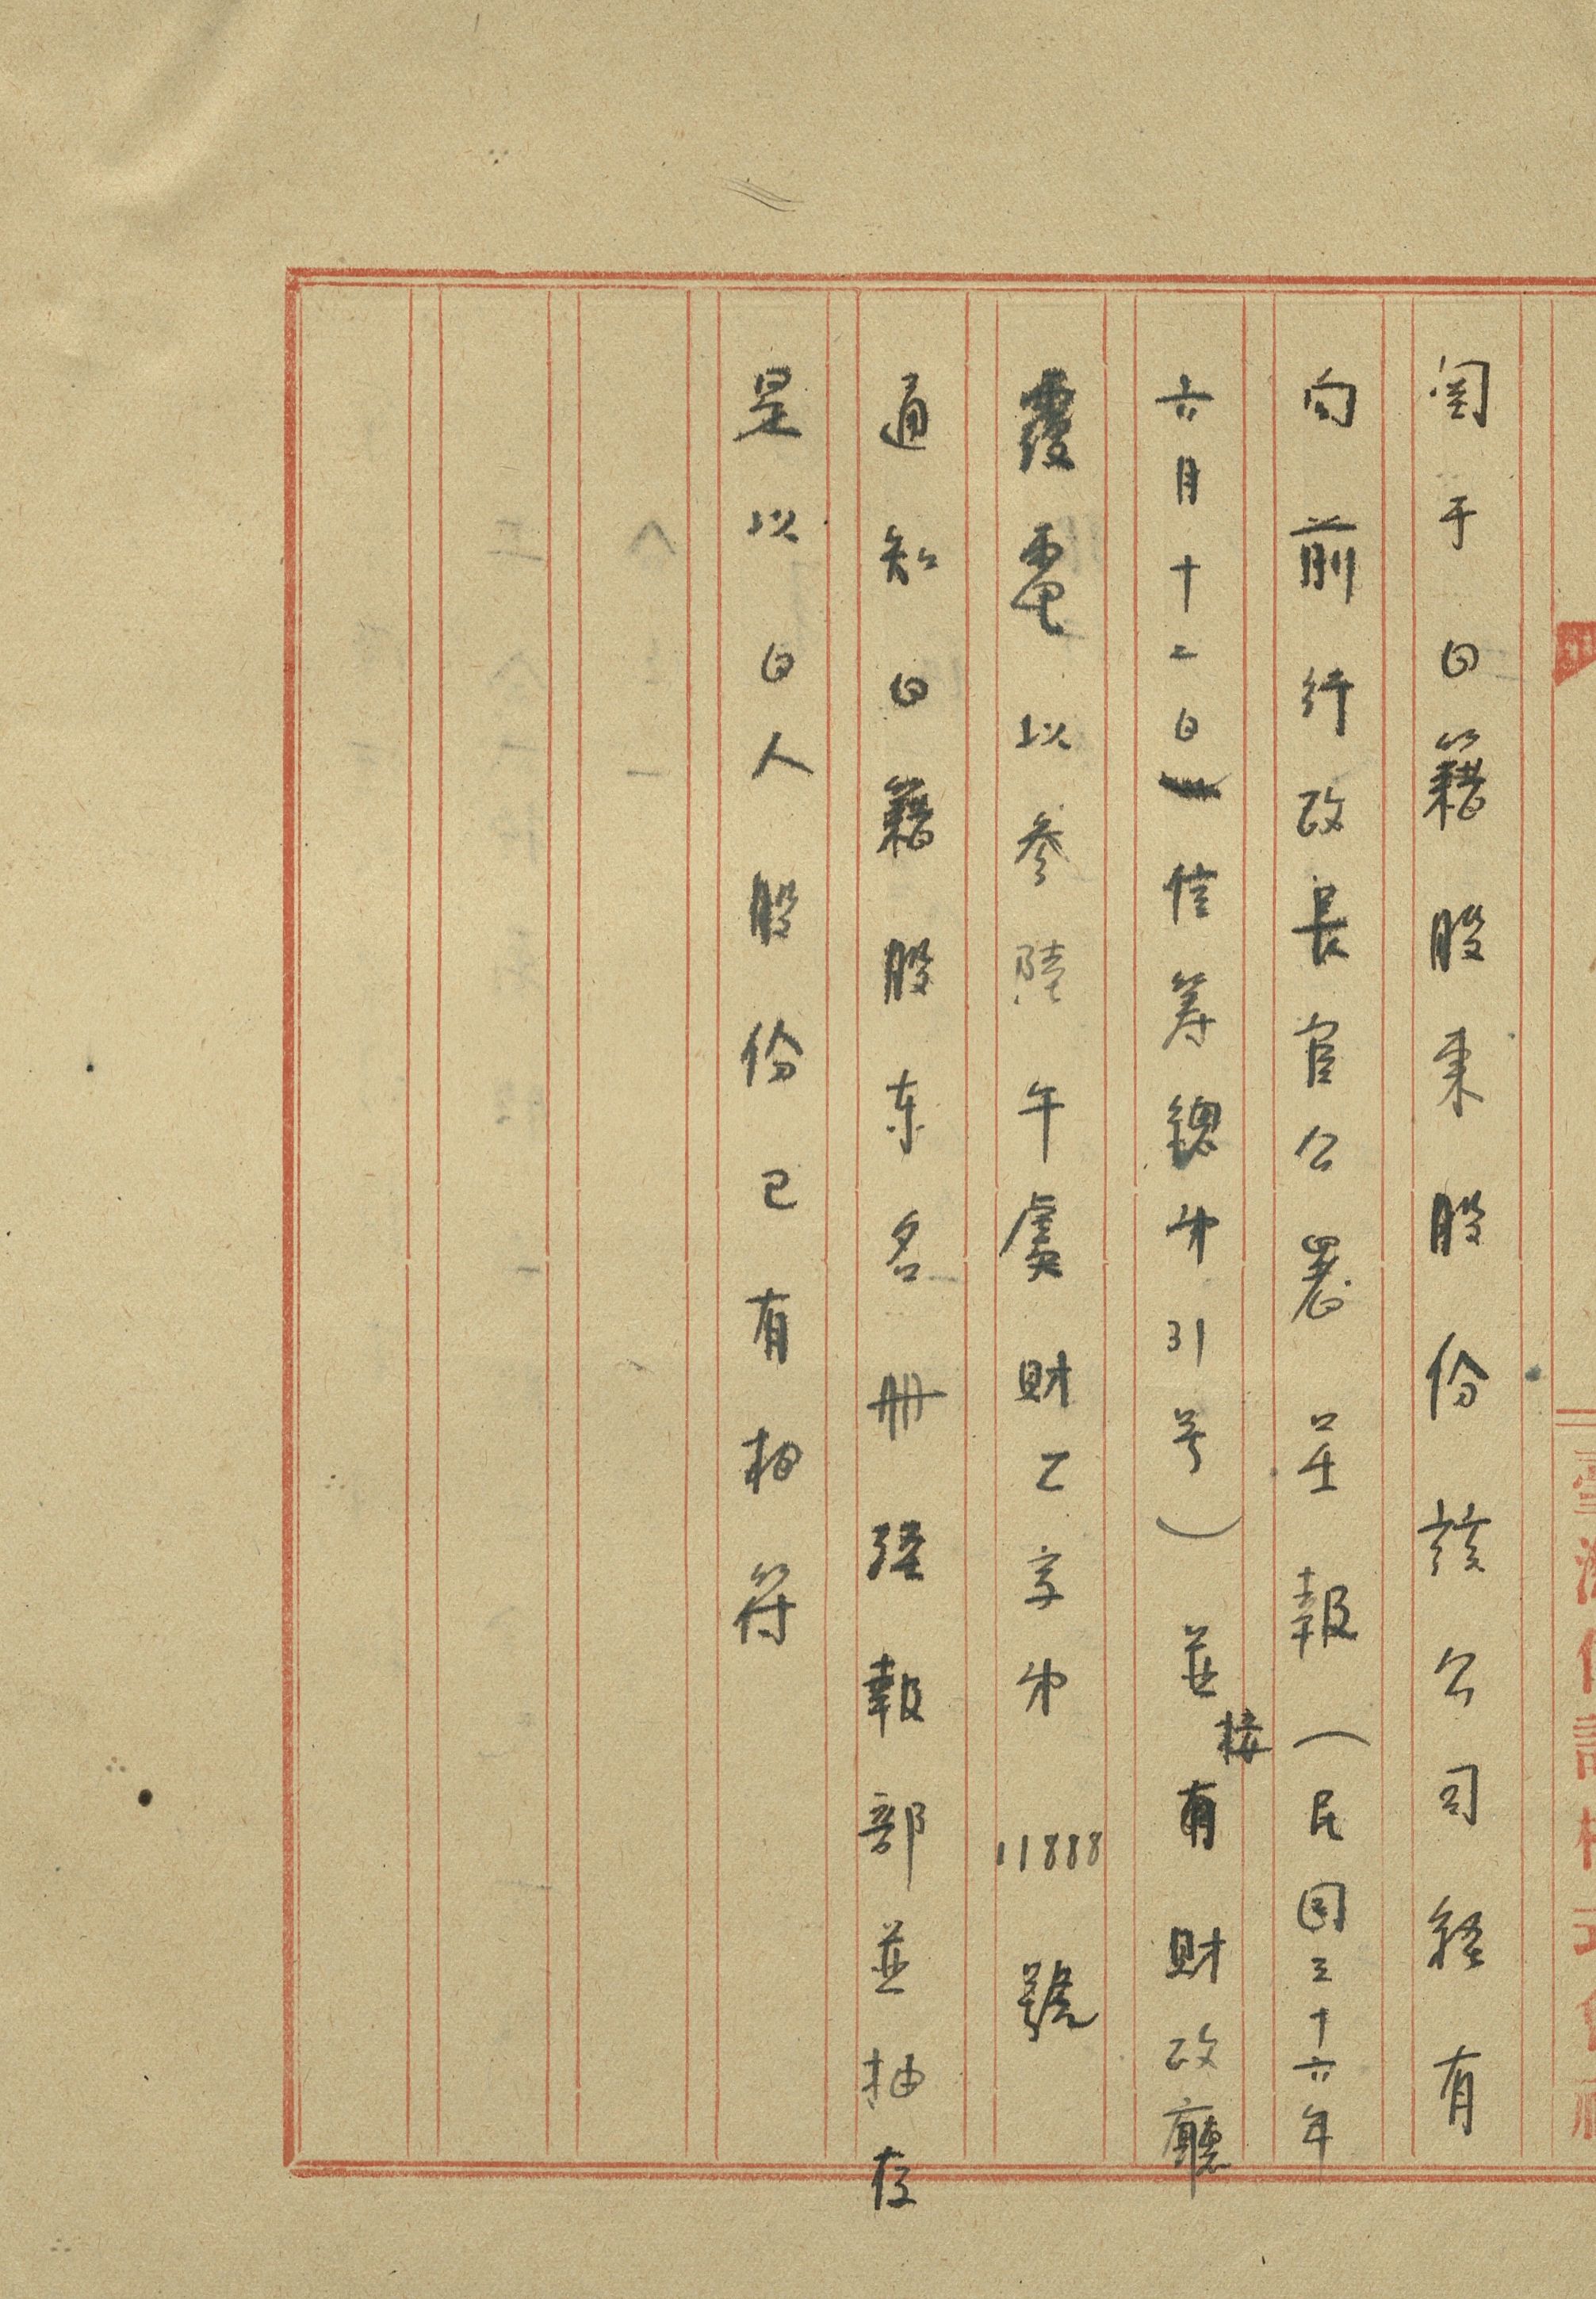 臺灣信託株式會社
関于日籍股東股份該公司經有
向前行政長官公署呈報（民国三十六年
六月十二日信筹總第31号）並接有財政廳
覆電以參陸午虞財乙字第11888號
通知日籍股东名冊經報部並抽存
是以日人股份已有相符